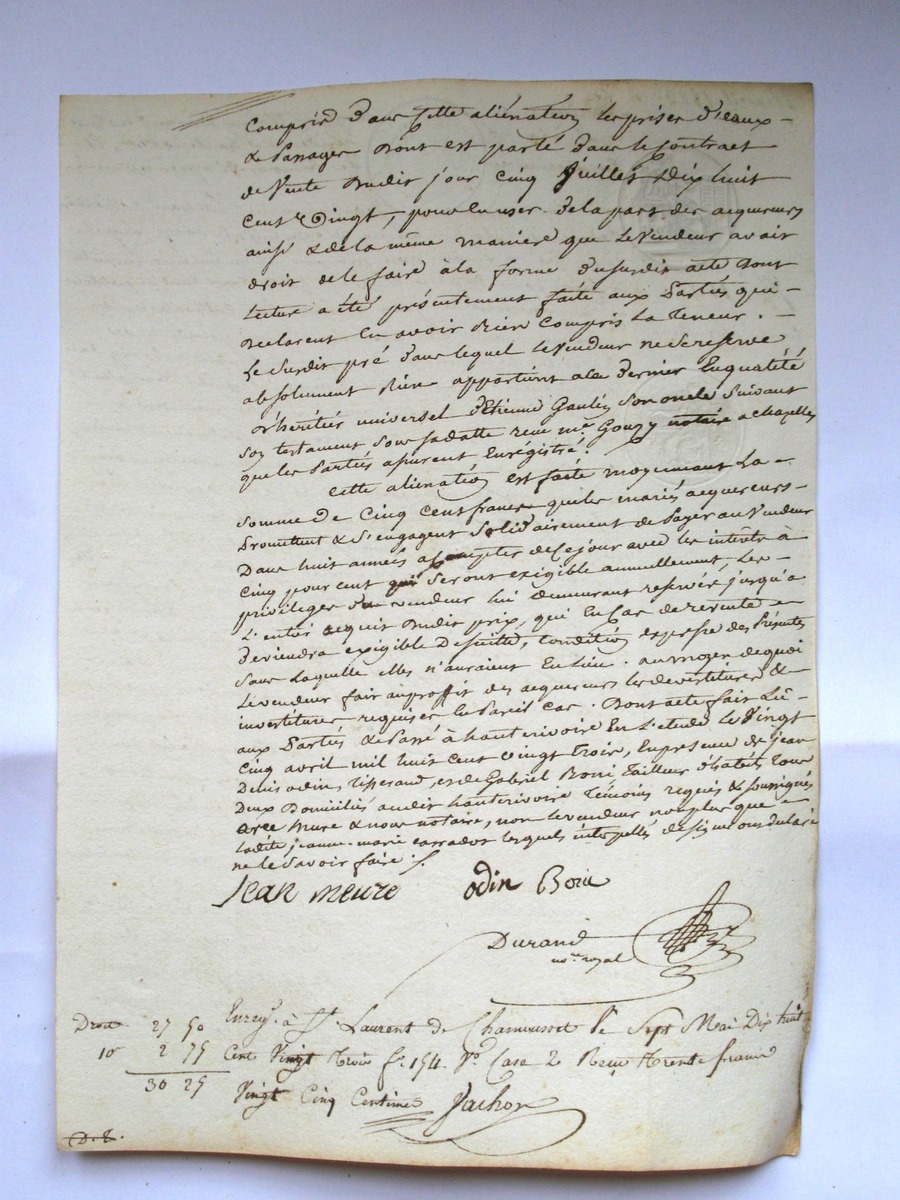 Compris dans cette aliénation les prises d'eaux
& Passages dont est parlé dans le Contract
de Vente dudit jour cinq Juillet dix huit
cent Vingt, pour en user de la part des acquereurs
ainsi & de la même maniere que le Vendeur avait
droit de le faire à la forme du susdit acte dont
lecture a été présentement faite aux Parties qui
declarent en avoir bien compris la teneur.
Le susdit pré dans lequel le Vendeur ne se reserve
absolument Rien appartient a ce dernier En qualité
d'héritier universel d'Etienne Son oncle Suivant
son testament sous sa datte recu me Gouzy notaire a chazelles
que les Parties assurent Enrégistré.
Cette aliénation est faite moyennant La
Somme de Cinq Cent francs que les mariés acquereurs
Promettent & S'engagent Solidairement de Payer au Vendeur
Dans huit années a Compter de ce jour avec les intérêts à
Cinq pour cent qui Seront exigible annuellement, Les
privileges du vendeur lui demeurant reservés jusqu'a
L'entier acquit dudit prix, qui En Cas de revente
deviendra exigible De suitte, Condition expresse des Présentes
Sans Laquelle elles n'auraient En Lieu. au moyen de quoi
Le vendeur fait au proffit des acquereurs les devestitures &
investitures requises En Pareil Cas. Dont acte fait Lu
aux Parties & Passé à hauterivoire En L'etude Le Vingt
Cinq avril mil huit Cent Vingt Trois, En presence de jean
Denis odin Tisserand, et de Gabriel Tailleur d'habits, Tous
deux Domiciliés audit hauterivoire Témoins requis & soussignés
avec Mure & nous notaire, non le vendeur non plus que
ladite jeanne-marie lesquels interpellés de signer ont declaré
ne le Savoir faire ./.
Jean meure odin
Durand
nore royal
Droit 27 50 Enregt. à St. Laurent de Chamousset le Sept Mai Dix huit
10e 2 75 Cent Vingt Trois fo. 154. Vo. Case 2 Reçu trente francs
30 25 Vingt Cinq Centimes
D. E.